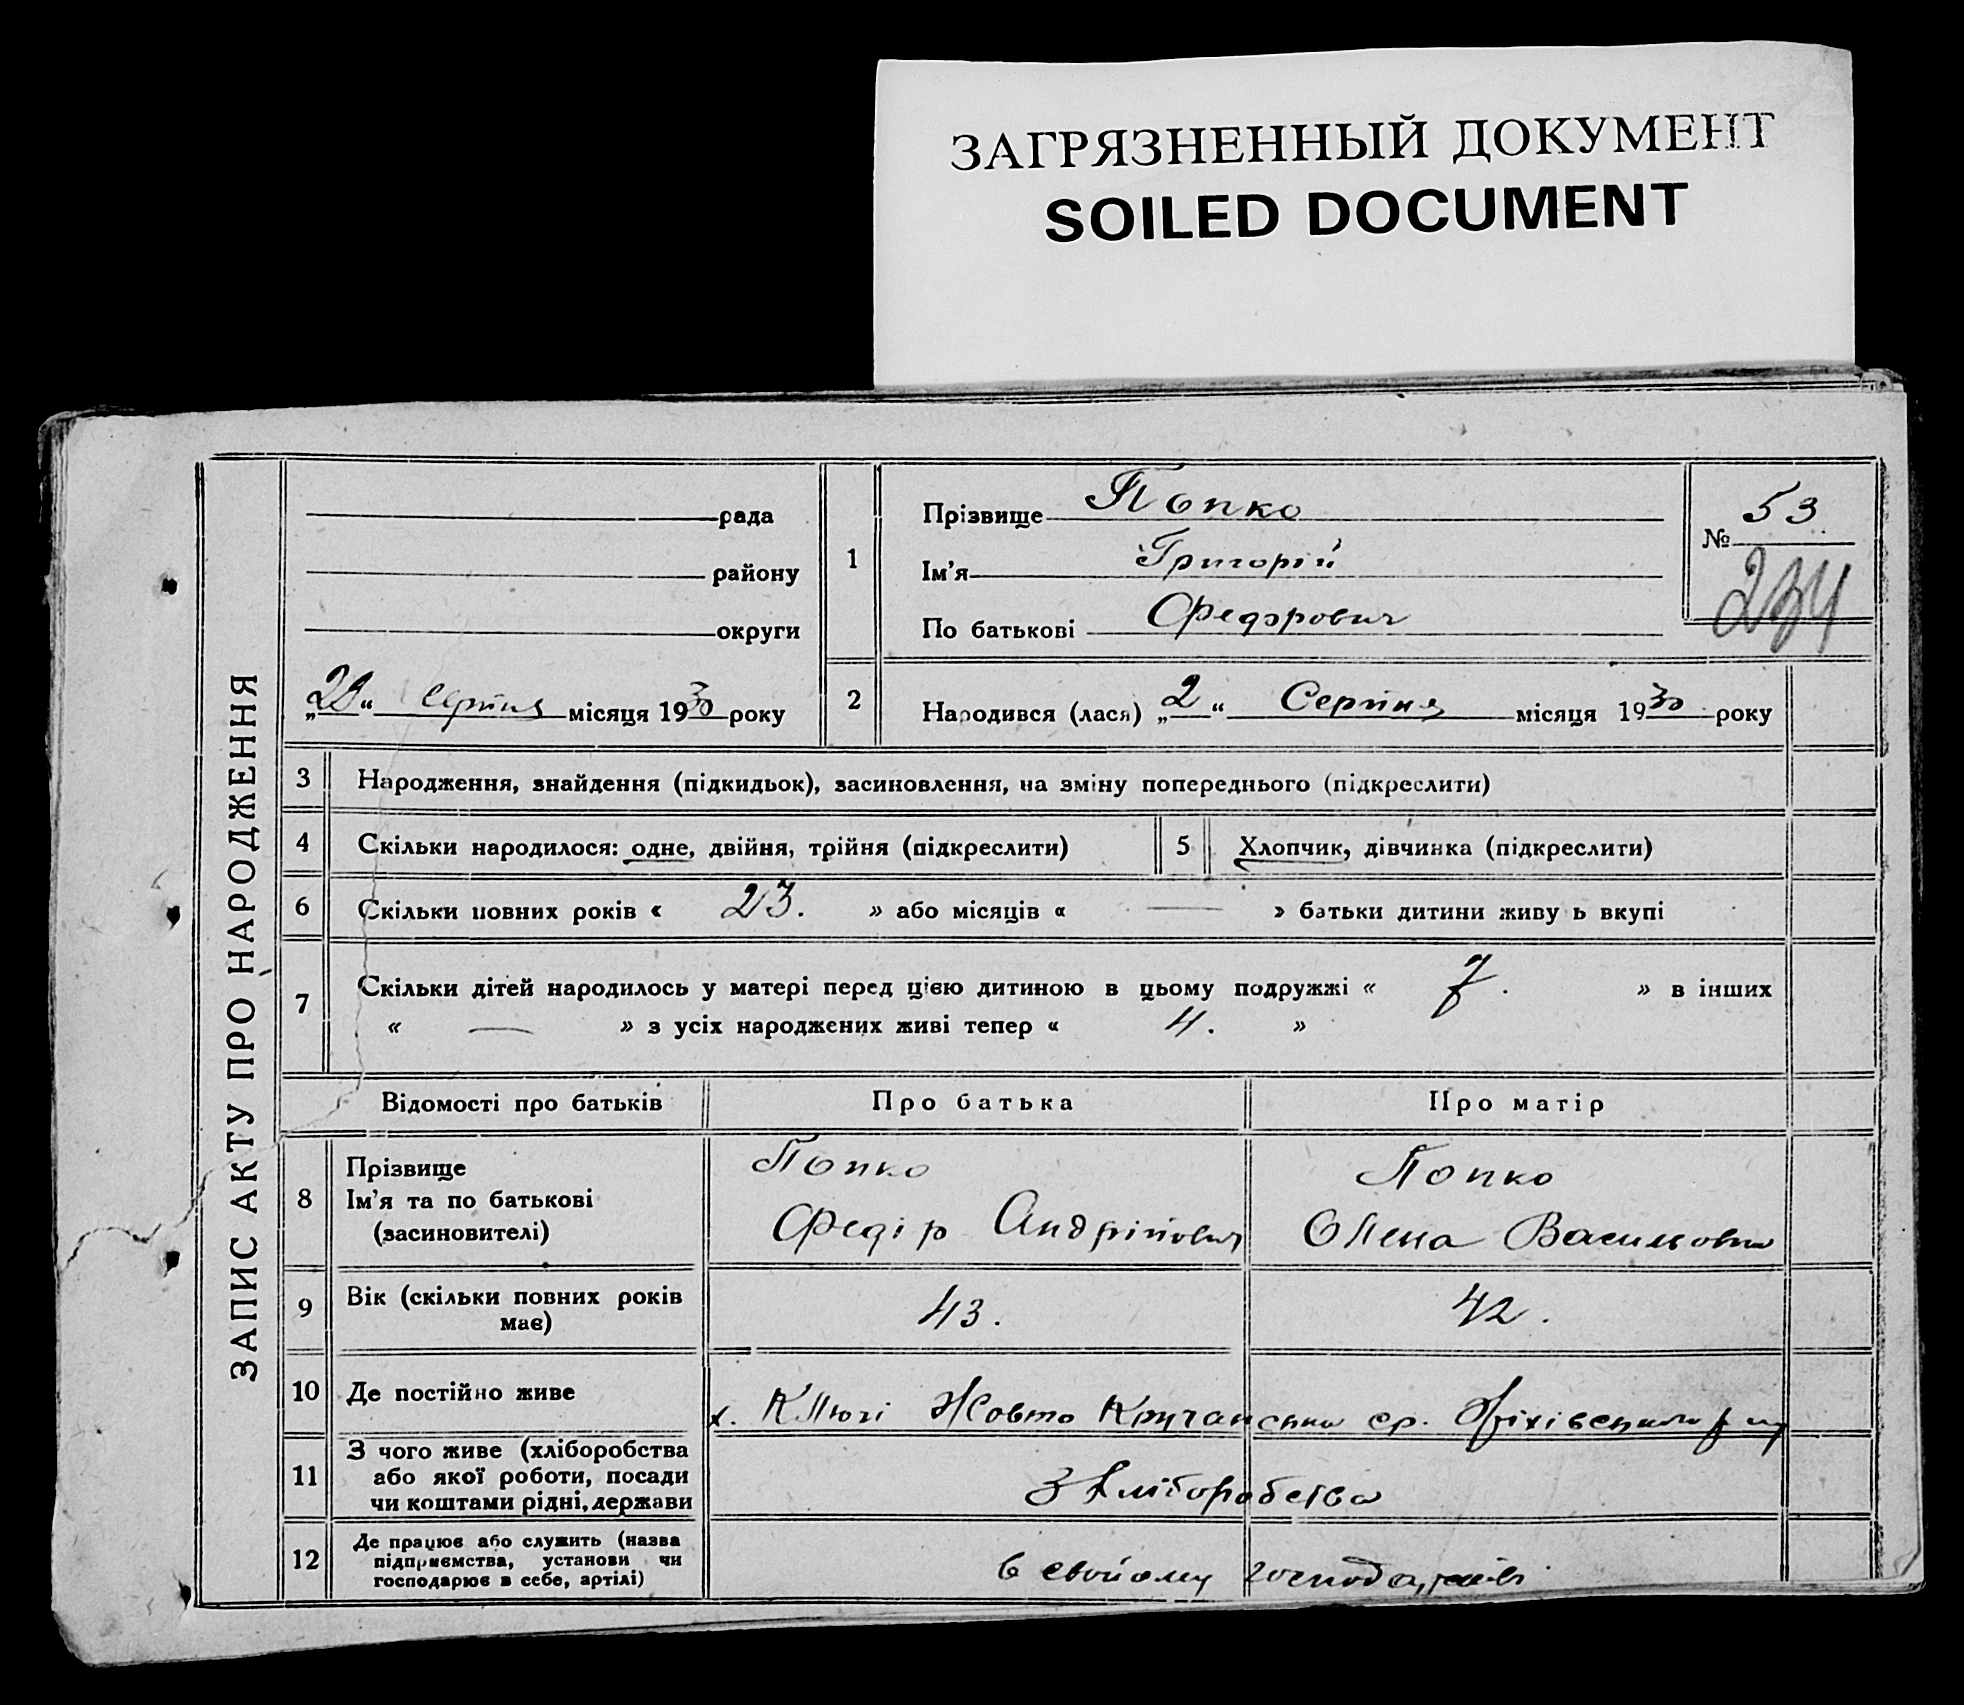 ЗАГРЯЗНЕННЫЙ ДОКУМЕНТ
SOILED DOCUMENT
ЗАПИС АКТУ ПРО НАРОДЖЕННЯ
рада
району
округи
„ “ Серпня місяця 1930 року
1
Прізвище Попко
Ім’я Григорій
По батькові Федорович
№ 53
234
2
Народився (лася) „2“ Серпня місяця 1930 року
3 Народження, знайдення (підкидьок), засиновлення, на зміну попереднього (підкреслити)
4 Скільки народилося: одне, двійня, трійня (підкреслити)
5 Хлопчик, дівчинка (підкреслити)
6 Скільки повних років « 23. » або місяців « — » батьки дитини живу ь вкупі
7 Скільки дітей народилось у матері перед цією дитиною в цьому подружжі « 7. » в інших
« — » з усіх народжених живі тепер « 4. »
Відомості про батьків Про батька Про матір
8 Прізвище
Ім’я та по батькові
(засиновителі)
Попко
Федір Андрійович
Попко
Олена Васильовна
9 Вік (скільки повних років
має)
43. 42.
10 Де постійно живе х. Ключі Жовто
11 З чого живе (хліборобства
або якої роботи, посади
чи коштами рідні, держави
з хліборобства
12 Де працює або служить (назва
підприємства, установи чи
господарює в себе, артілі)
в свойому господарстві